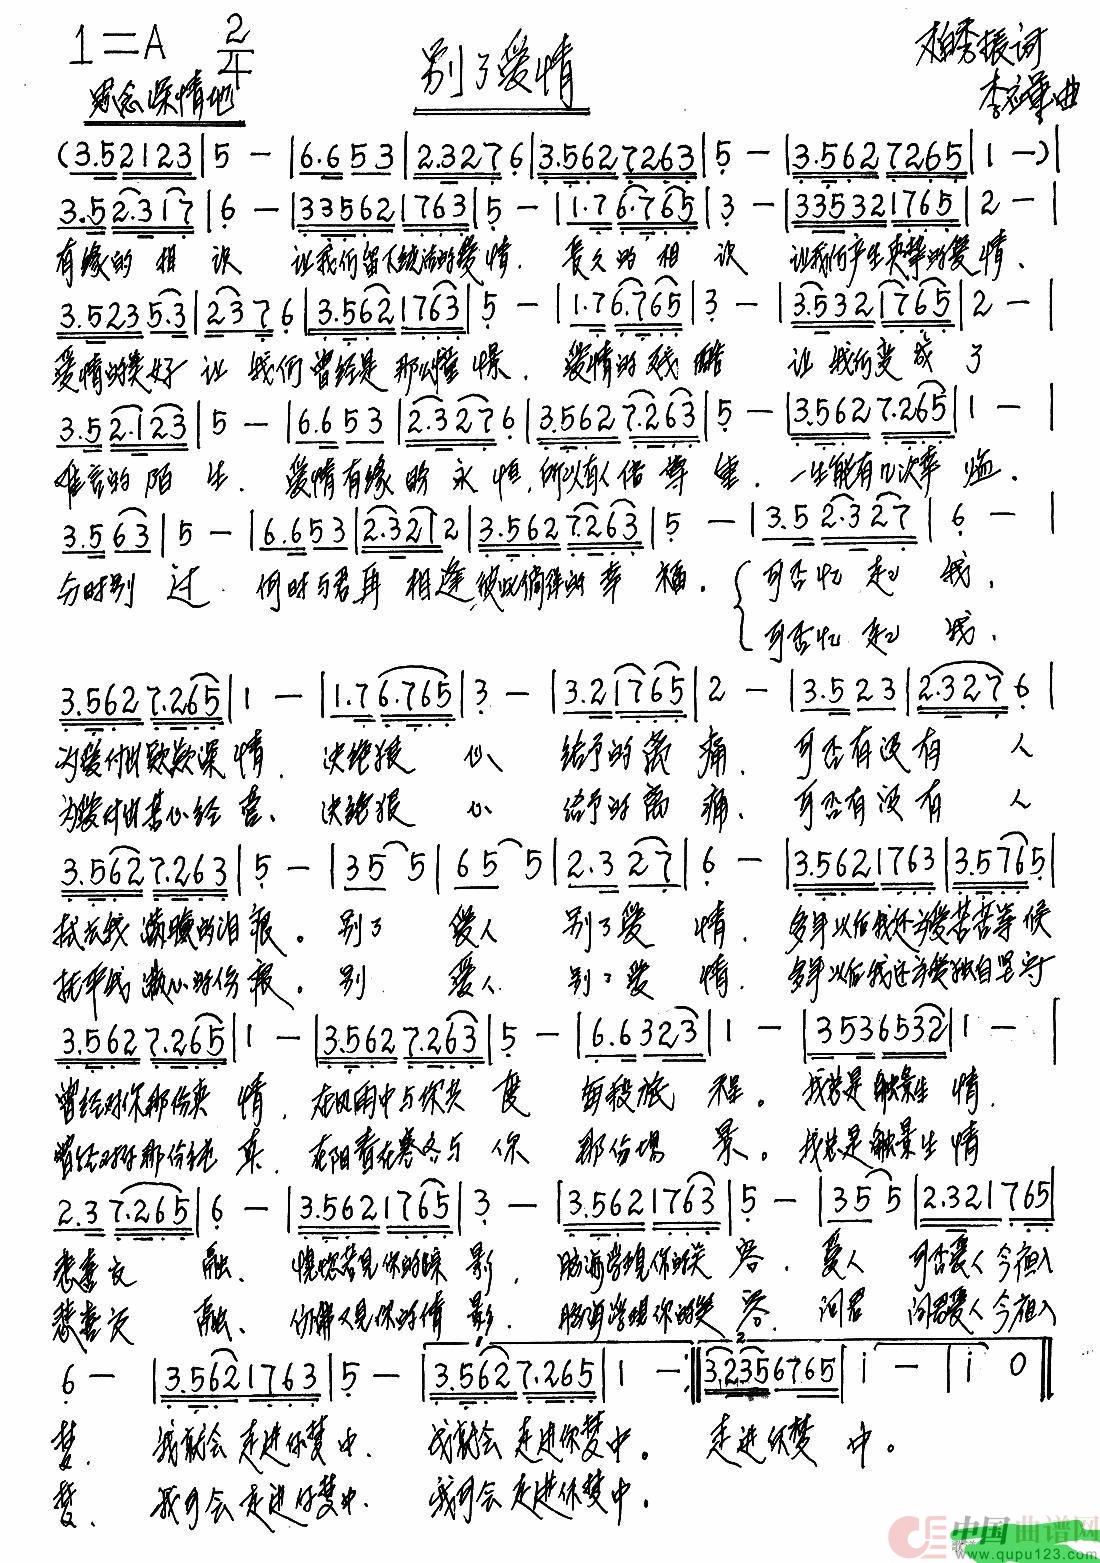 1=A 2/4
别了爱情
柏秀振词
思念深情地
李 曲
(3.52123|5 —|6.653|2.3276|3.5627263|5 —|3.5627265|1 —)|
3.52.317|6 —|335621763|5 —|1.76.765|3 —|335321765|2 —|
有缘的相识 让我们留下纯洁的爱情. 长久的相识 让我们产生真挚的爱情.
3.5235.3|2376|3.5621763|5 —|1.76.765|3 —|3.5321765|2 —|
爱情的美好让我们曾经是那么憧憬. 爱情的残酷 让我们变成了
3.52.123|5 —|6.653|2.3276|3.5627.263|5 —|3.5627.265|1 —|
难言的陌生. 爱情有缘的永恒,所以有人倍尊重. 一生能有几次幸
3.563|5 —|6.653|2.3212|3.5627.263|5 —|3.52.327|6 —|
与时别过. 何时与君再相逢 的幸福. 可否忆起我.
可否忆起我.
3.5627.265|1 —|1.76.765|3 —|3.21765|2 —|3.523|2.3276|
为爱付出款款深情. 决绝狠心 给予的离痛. 可否有没有人
为爱付出苦心经营. 决绝狠心 给予的离痛. 可否有没有人
3.5627.263|5 —|355|655|2.327|6 —|3.5621763|3.5765|
拭去我满腮的泪痕。别了爱人 别了爱情. 多年以后我还为爱苦苦等候
抚平我满心的伤痕。别 爱人 别了爱情. 多年以后我还为爱独自坚守
3.5627.265|1 —|3.5627.263|5 —|6.6323|1 —|3536532|1 —|
曾经对你那份真情. 在风雨中与你共度 每段旅程。我总是触景生情.
曾经对你那份纯真. 在阳春在寒冬与你 那份场景。我总是触景生情
2.37.265|6 —|3.5621765|3 —|3.5621763|5 —|355|2.321765|
悲喜交融. 恍惚若见你的踪影. 脑海浮现你的笑容. 爱人 可否爱人今夜入
悲喜交融. 仿佛又见你的倩影. 脑海浮现你的笑容. 问君 问君爱人今夜入
6 —|3.5621763|5 —|3.5627.265|1 —:|3.2356765|i —|i 0||
梦. 我就会走进你梦中. 我就会走进你梦中。 走进你梦中。
梦. 我可会走进你梦中. 我可会走进你梦中。
中国曲谱网
www.qupu123.com